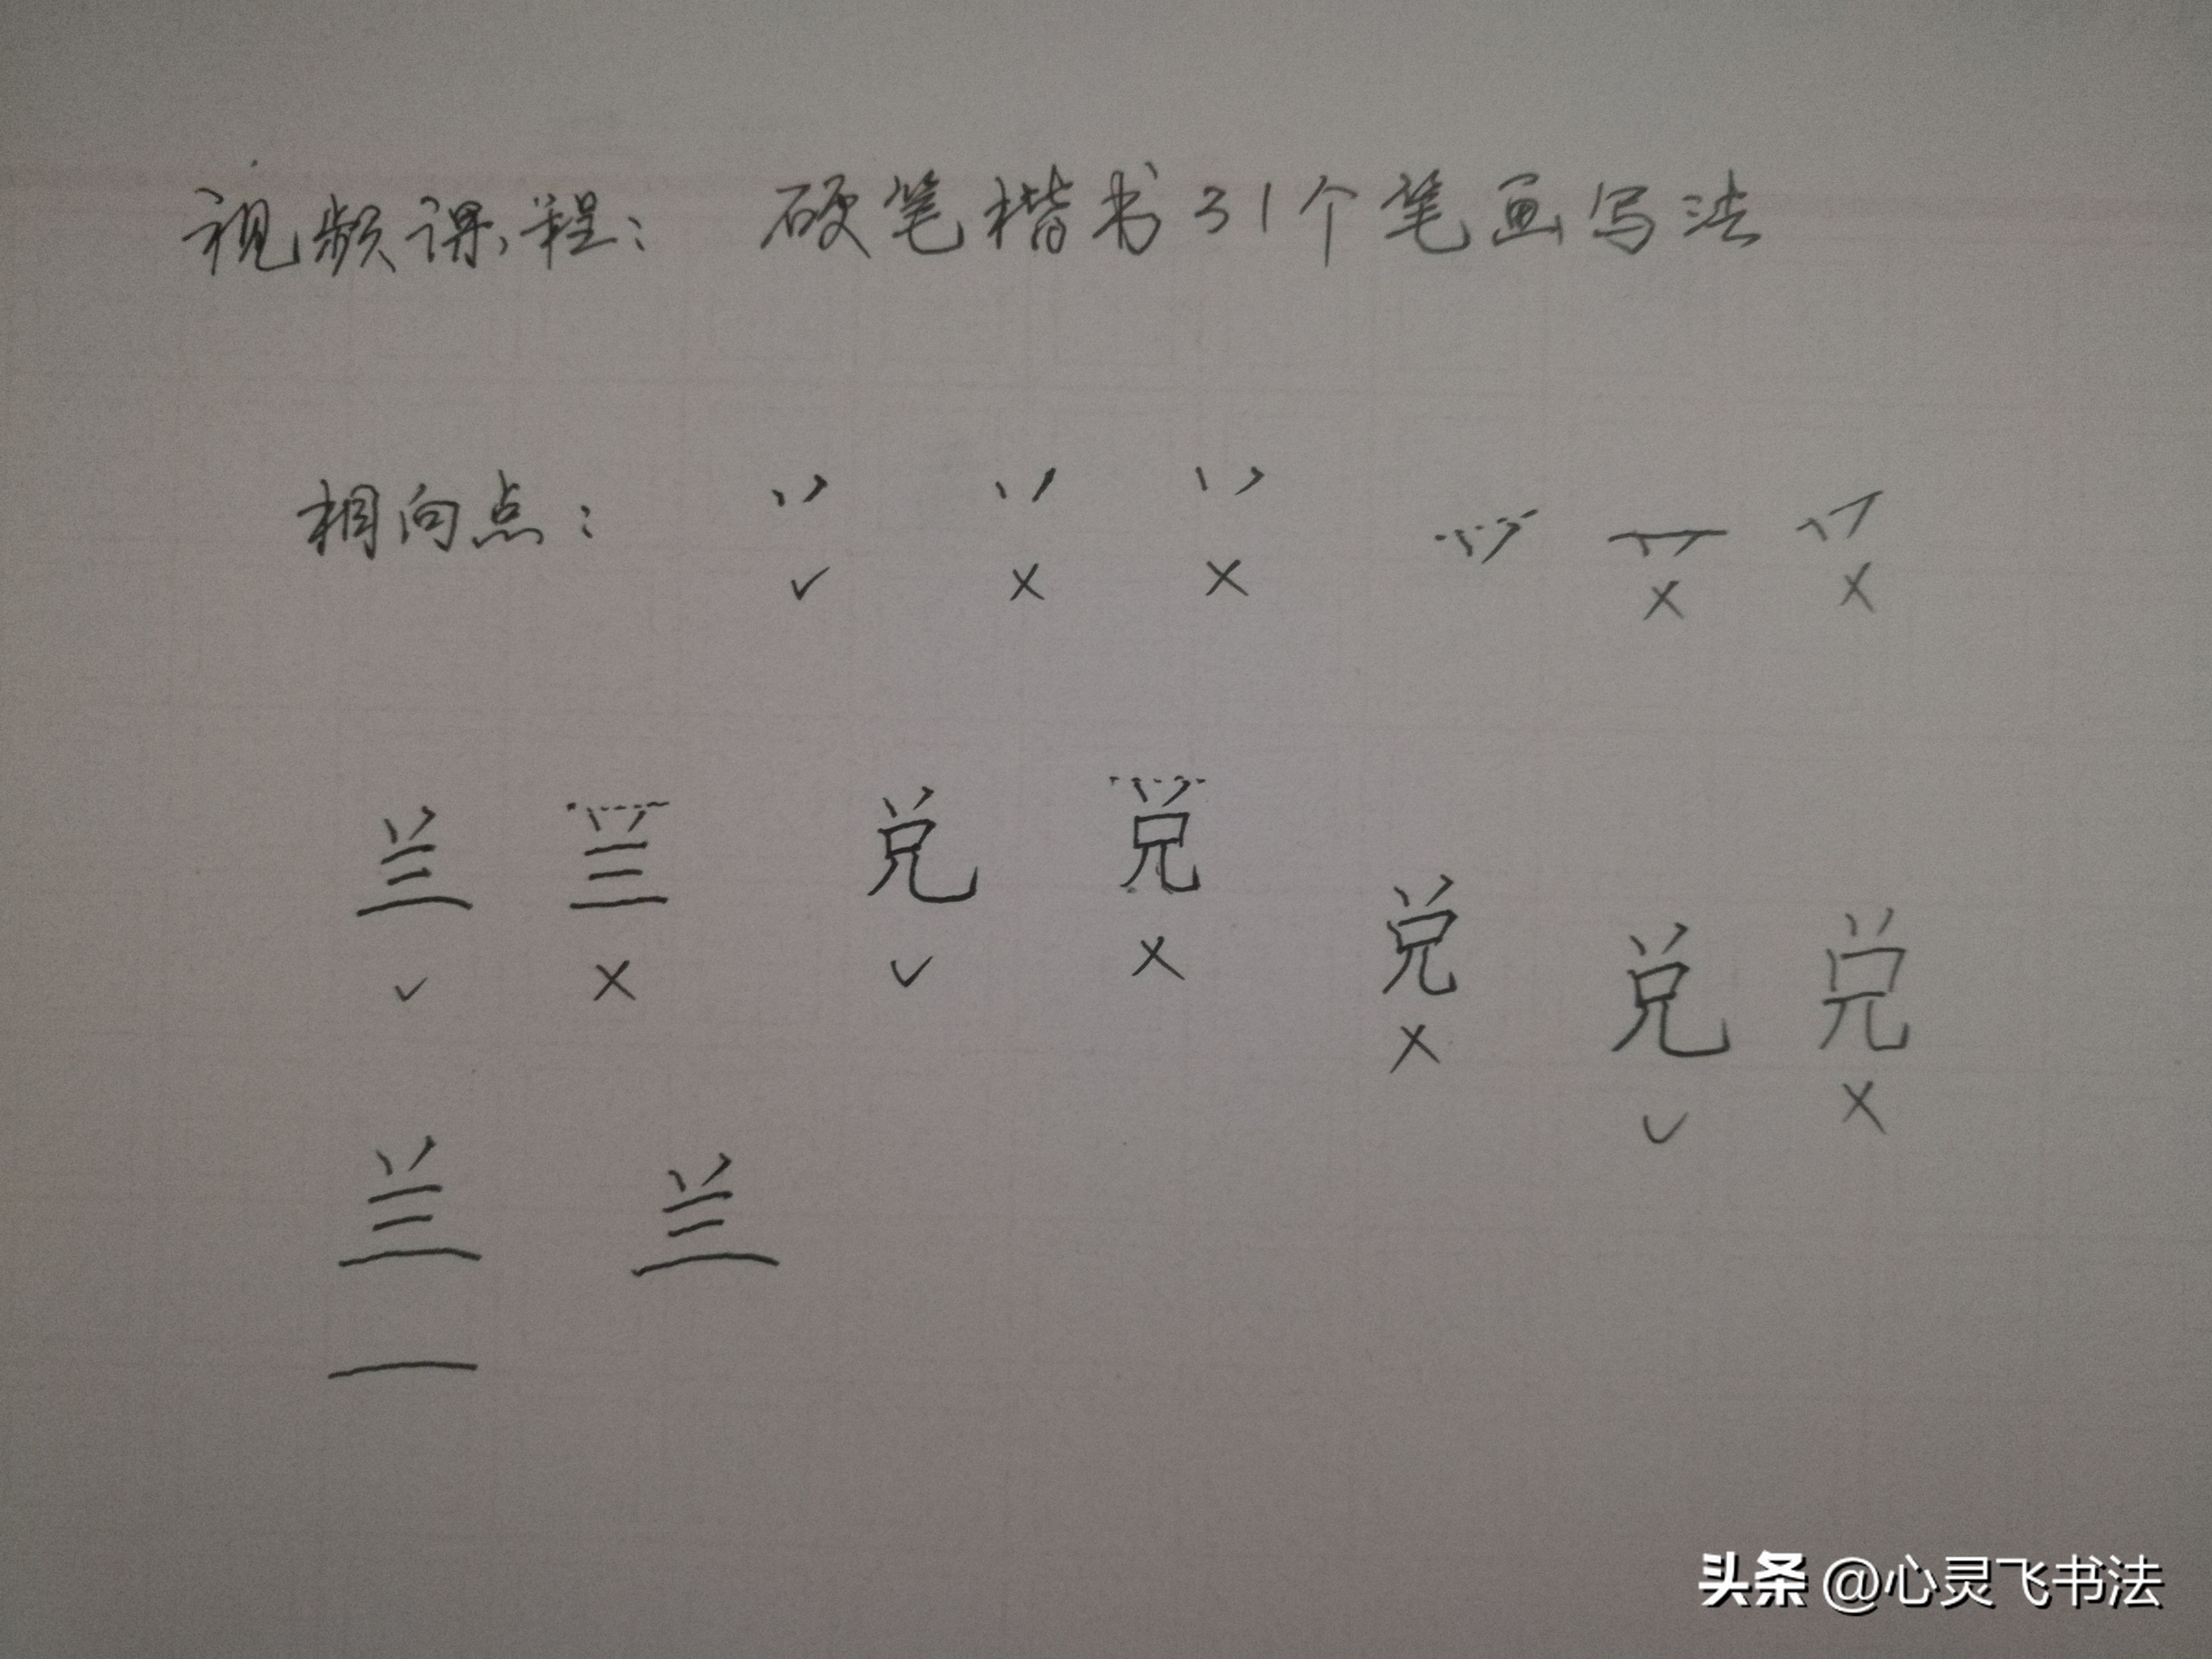 视频课程： 硬笔楷书31个笔画写法
相向点：
✓ × × × ×
兰 兰 兑 兑 兑 兑 兑
✓ × ✓ × × ✓ ×
兰 兰
一
头条 @心灵飞书法